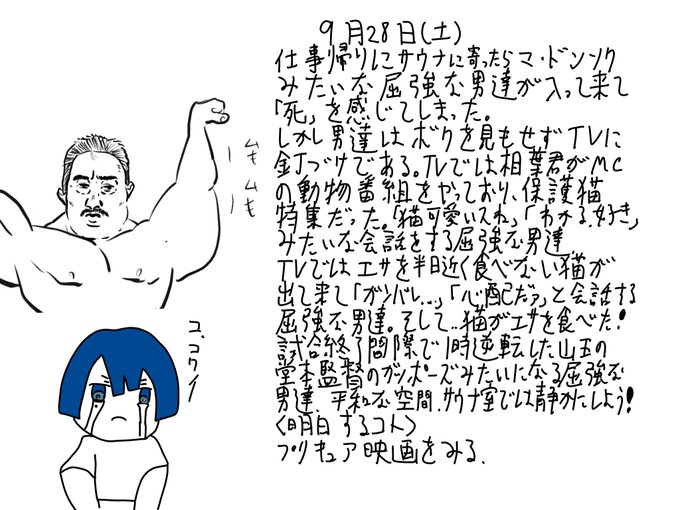 9月28日(土)
仕事帰りにサウナに寄ったらマ・ドンソク
みたいな屈強な男達が入って来て
「死」を感じてしまった。
しかし男達はボクを見もせずTVに
釘づけである。TVでは相葉君がMC
の動物番組をやっており、保護猫
特集だった。「猫可愛いスね」「わかる、好き」
みたいな会話をする屈強な男達
TVではエサを半日近く食べない猫が
出て来て「ガンバレ…」「心配だァ」と会話する
屈強な男達。そして…猫がエサを食べた!
試合終了間際で1時逆転した山王の
堂本監督のガッポーズみたいになる屈強な
男達、平和な空間、サウナ室では静かにしよう!
〈明日するコト〉
プリキュア映画をみる、
ムキ
ムキ
コ、コワイ